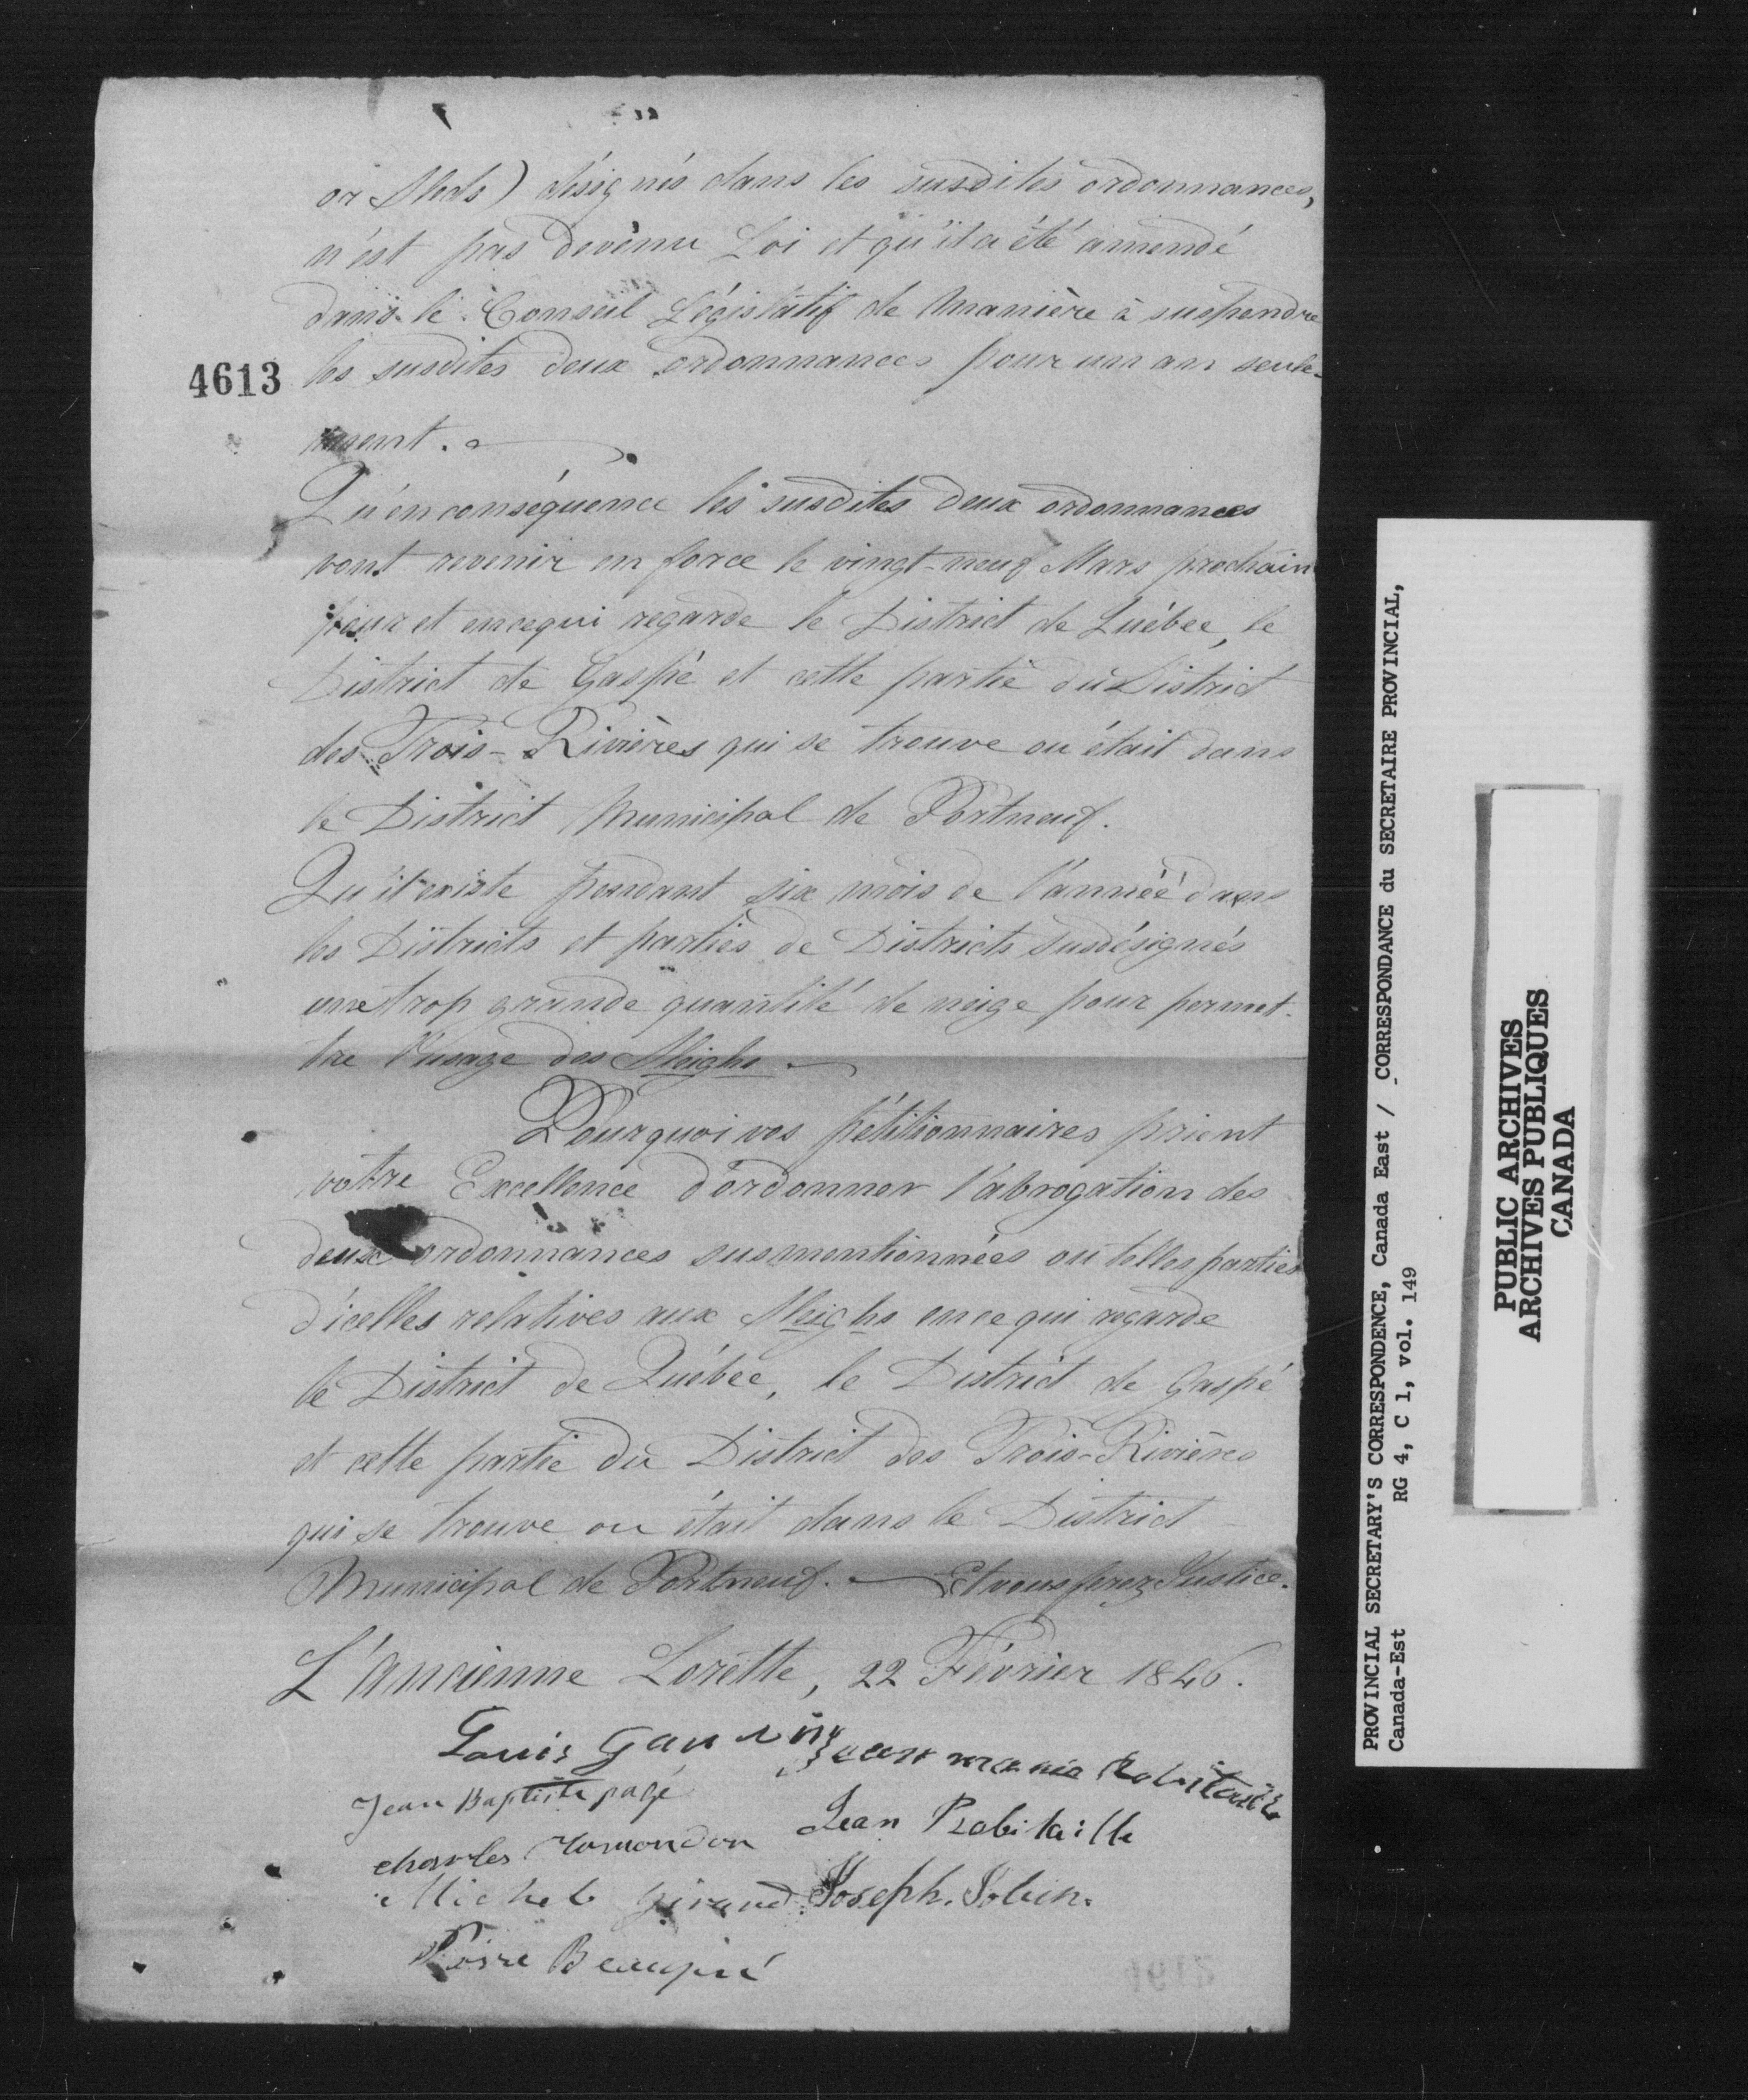 or Sleds) désignés dans les susdites ordonnances,
n'est pas devenu Loi et qu'il a été amendé
dans le Conseil Législatif de Manière à suspendre
4613
les susdites deux ordonnances pour un an seule-
ment.
Qu'en conséquence les susdites deux ordonnances
vont revenir en force le vingt-neuf Mars prochain
pour et en ce qui regarde le District de Québec, le
District de Gaspé et cette partie du District
des Trois-Rivières qui se trouve ou était dans
le District Municipal de Portneuf.
Qu'il existe pendant six mois de l'année dans
les Districts et parties de Districts susdésignés
une trop grande quantité de neige pour permet-
tre l'usage des Sleighs
Pourquoi vos pétitionnaires prient
votre Excellence d'ordonner l'abrogation des
deux ordonnances susmentionnées ou telles parties
d'icelles relatives aux Sleighs en ce qui regarde
le District de Québec, le District de Gaspé
et cette partie du District des Trois-Rivières
qui se trouve ou était dans le District
Municipal de Portneuf. — Et vous ferez Justice.
L'Ancienne Lorette, 22 Février 1846.
Louis Gauvin Jean marie Robitaille
Jean Baptiste pagé
Jean Robitaille
charles
Michel Girard Joseph. Jobin.
Beaupré
PROVINCIAL SECRETARY'S CORRESPONDENCE, Canada East / CORRESPONDANCE du SECRETAIRE PROVINCIAL,
Canada-Est RG 4, C 1, vol. 149
PUBLIC ARCHIVES
ARCHIVES PUBLIQUES
CANADA